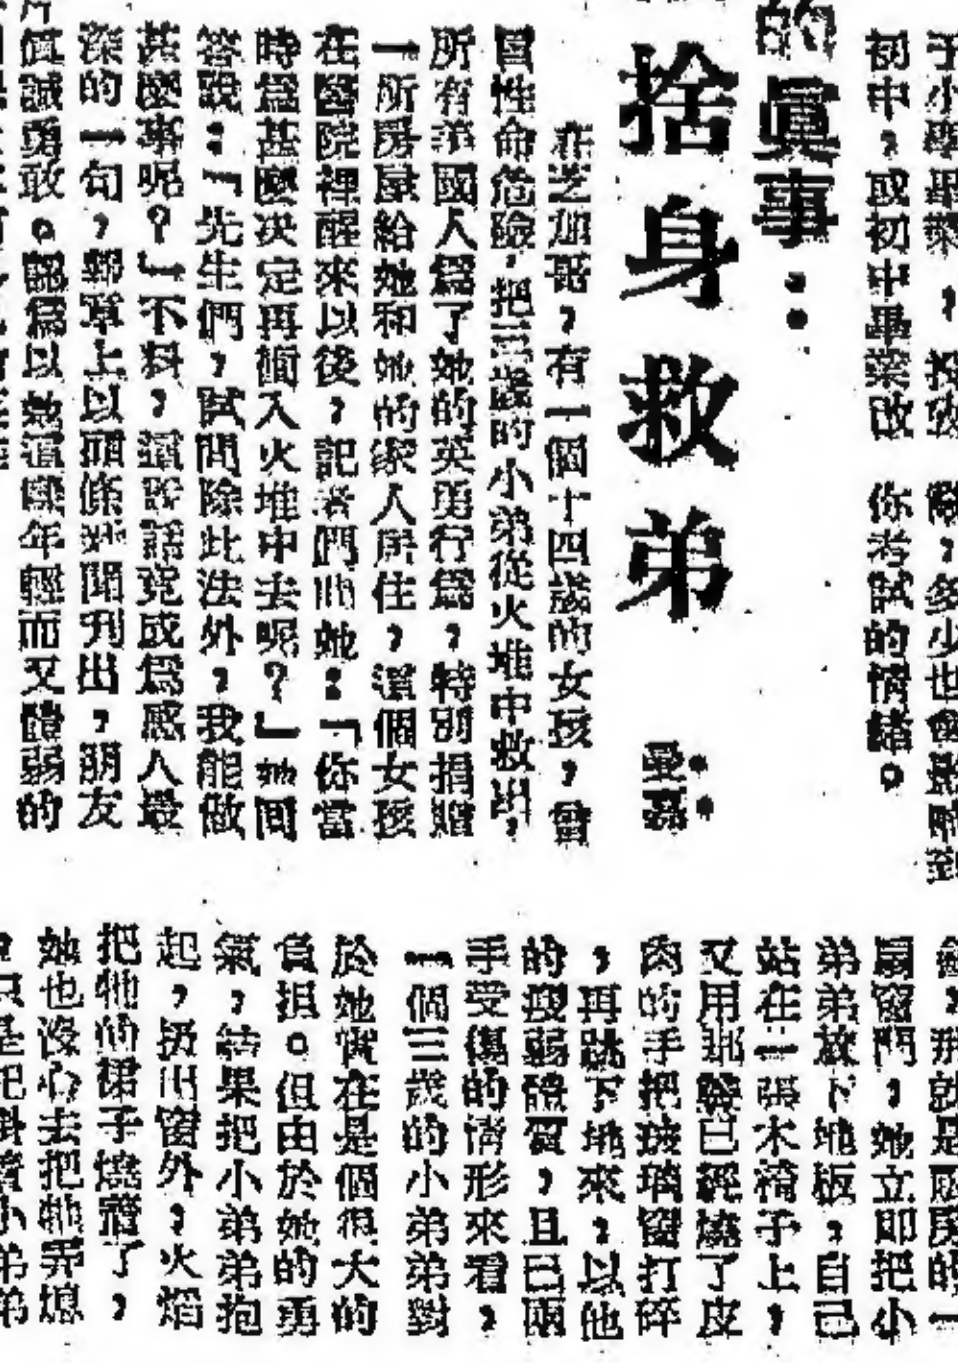 初中，或初中畢業改　你考試的情緒。
的眞事：
捨身救弟
曼嘉：
在芝加哥，有一個十四歲的女孩，曾
冒性命危險，把三歲的小弟從火堆中救出，
所有美國人爲了她的英勇行爲，特別捐贈
一所房屋給她和她的家人居住，這個女孩
在醫院裡醒來以後，記者們問她：「你當
時爲甚麼決定再衝入火堆中去呢？」她回
答說：「先生們，試問除此法外，我能做
甚麼事呢？」不料，這幾話竟成爲感人最
深的一句，報章上以頭條新聞刊出，朋友
眞誠勇敢。認爲以她這樣年輕而又體弱的
扇窗門，她立即把小
弟弟放下地板，自己
站在一張木椅子上，
又用那雙已經燒了皮
肉的手把玻璃窗打碎
，再跳下地來，以他
的瘦弱體質，且已兩
手受傷的情形來看，
一個三歲的小弟弟對
於她實在是個很大的
負担。但由於她的勇
氣，結果把小弟弟抱
起，扔出窗外，火焰
把牠的裙子燒着了，
她也沒心去把牠弄熄